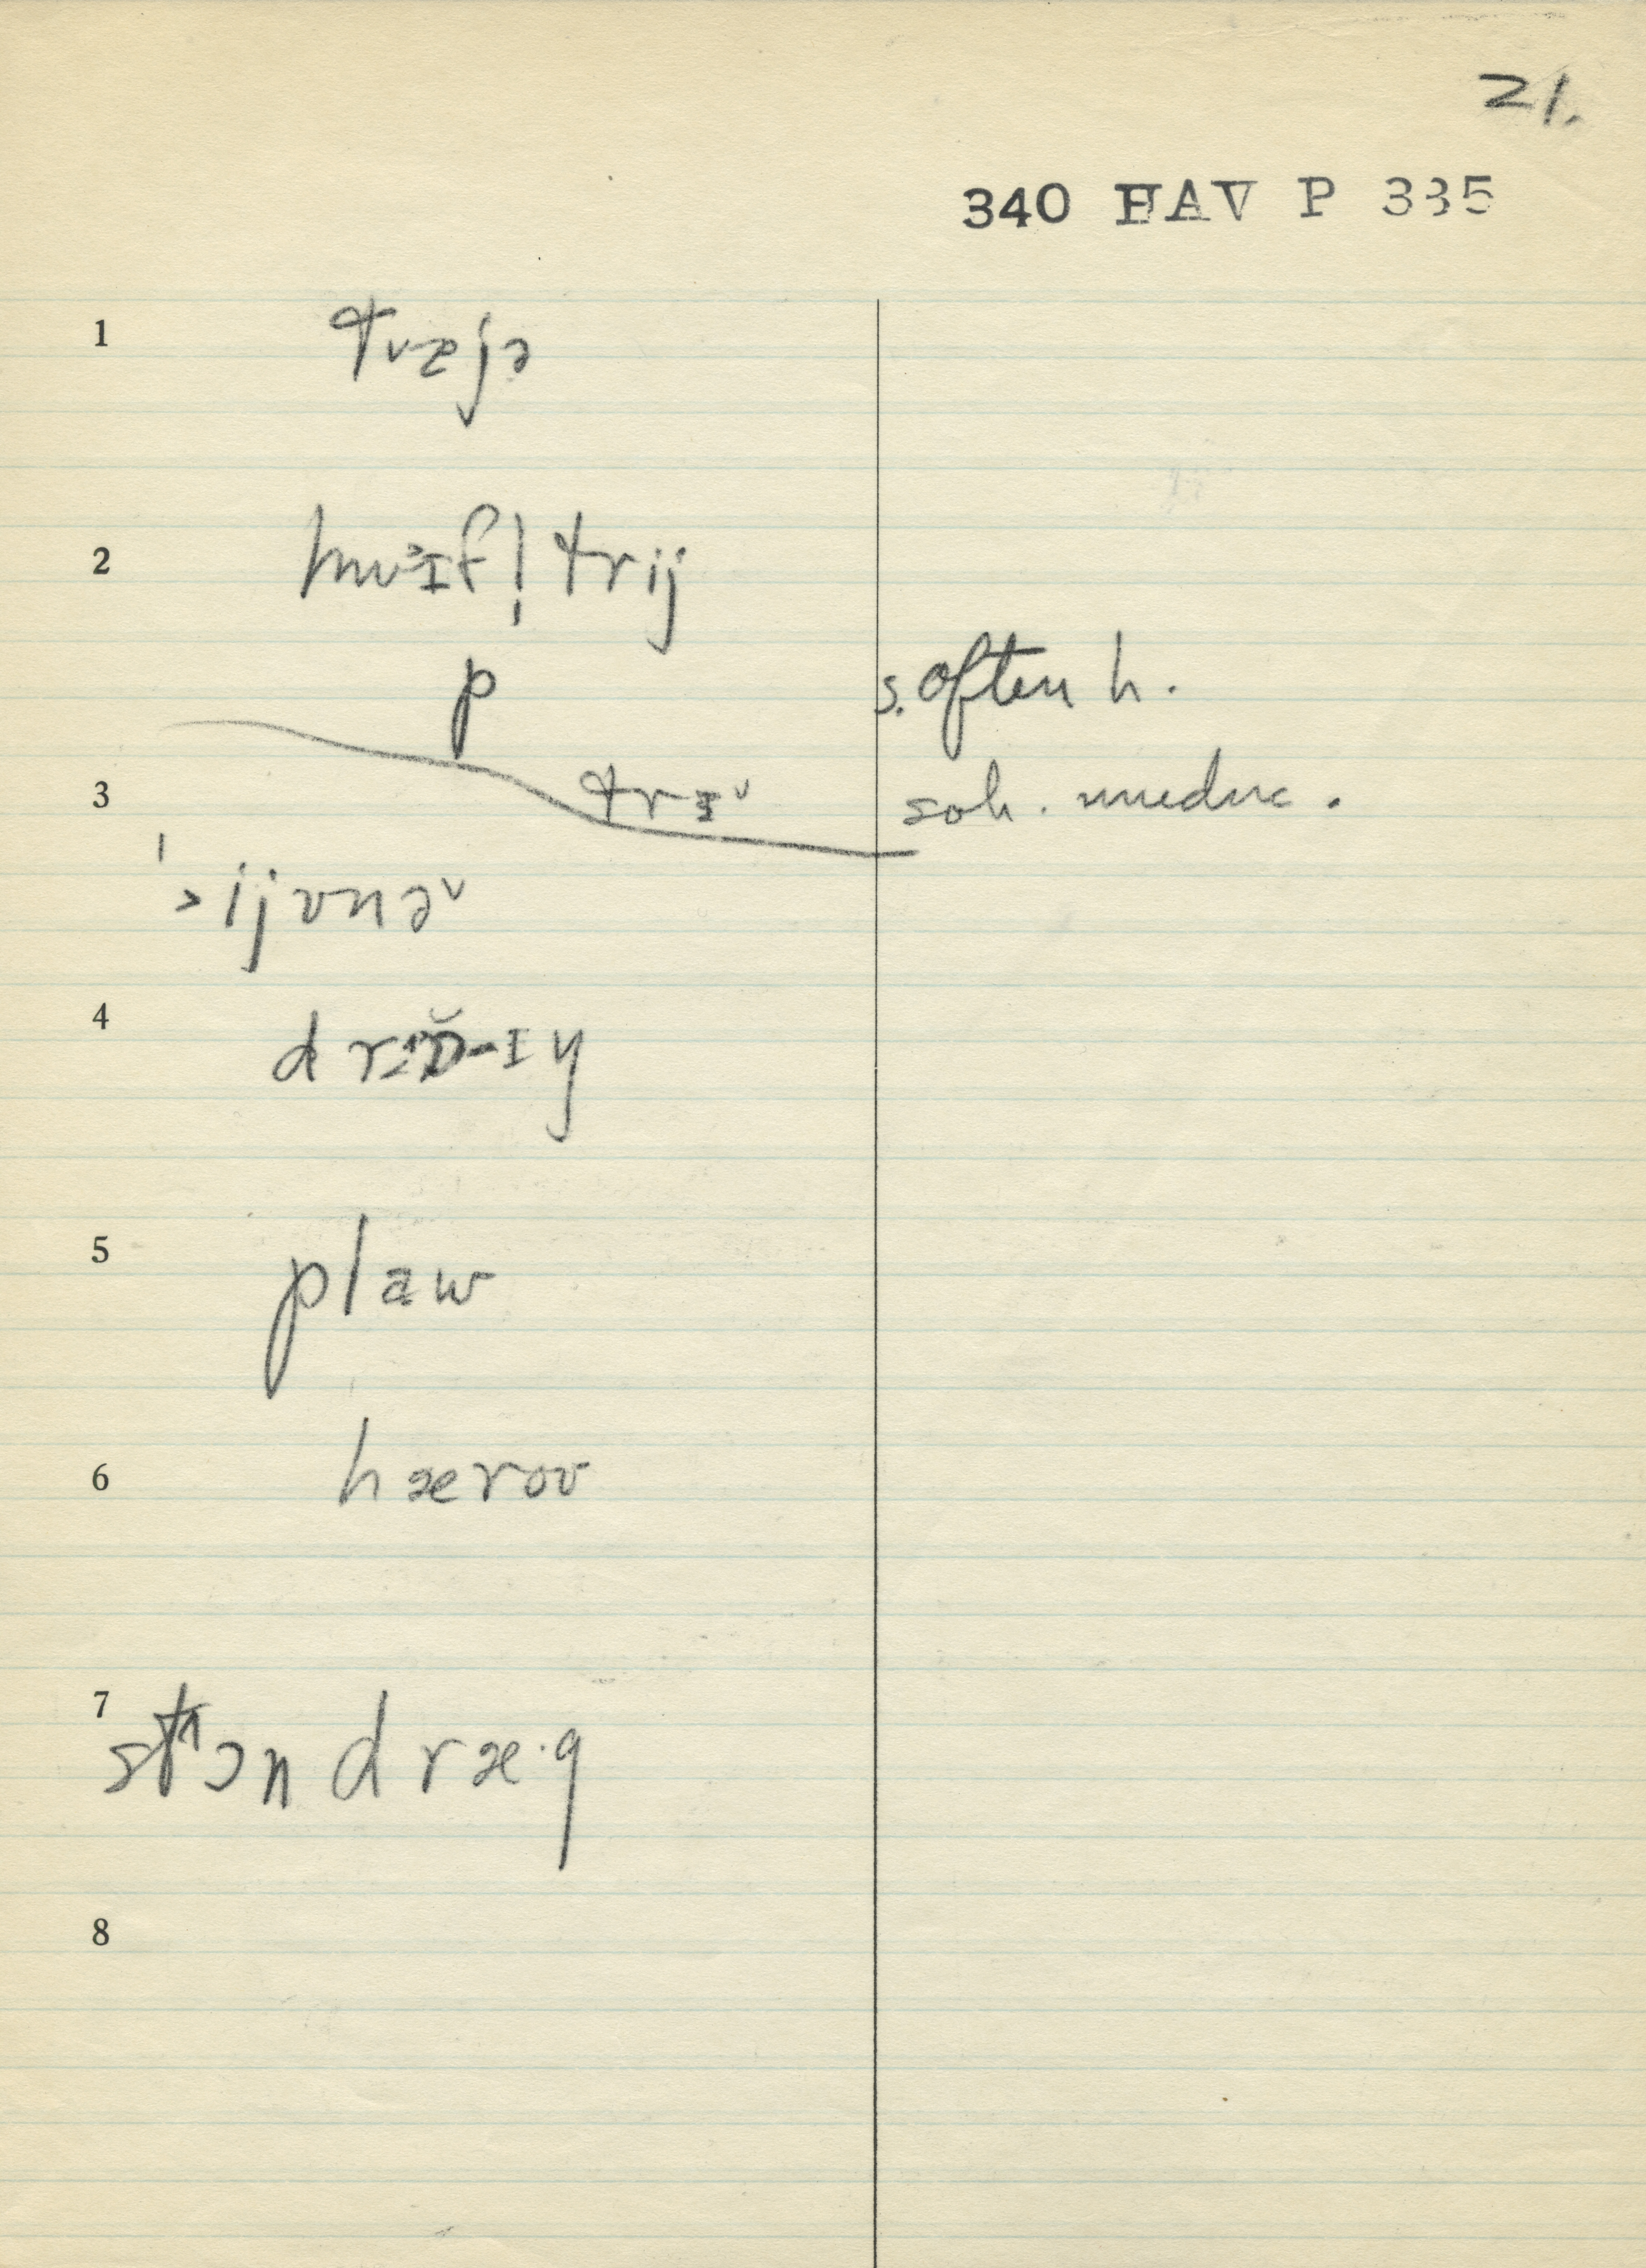 21.
340 HAV P 335
1 tvejə
2 hwɪfl̩trij
p s. often h.
3 trɪᵛ soh. uneduc.
ˈ˃ijvnəᵛ
4
5 plaw
6 hærov
7 stᴧɔn dræ·g
8